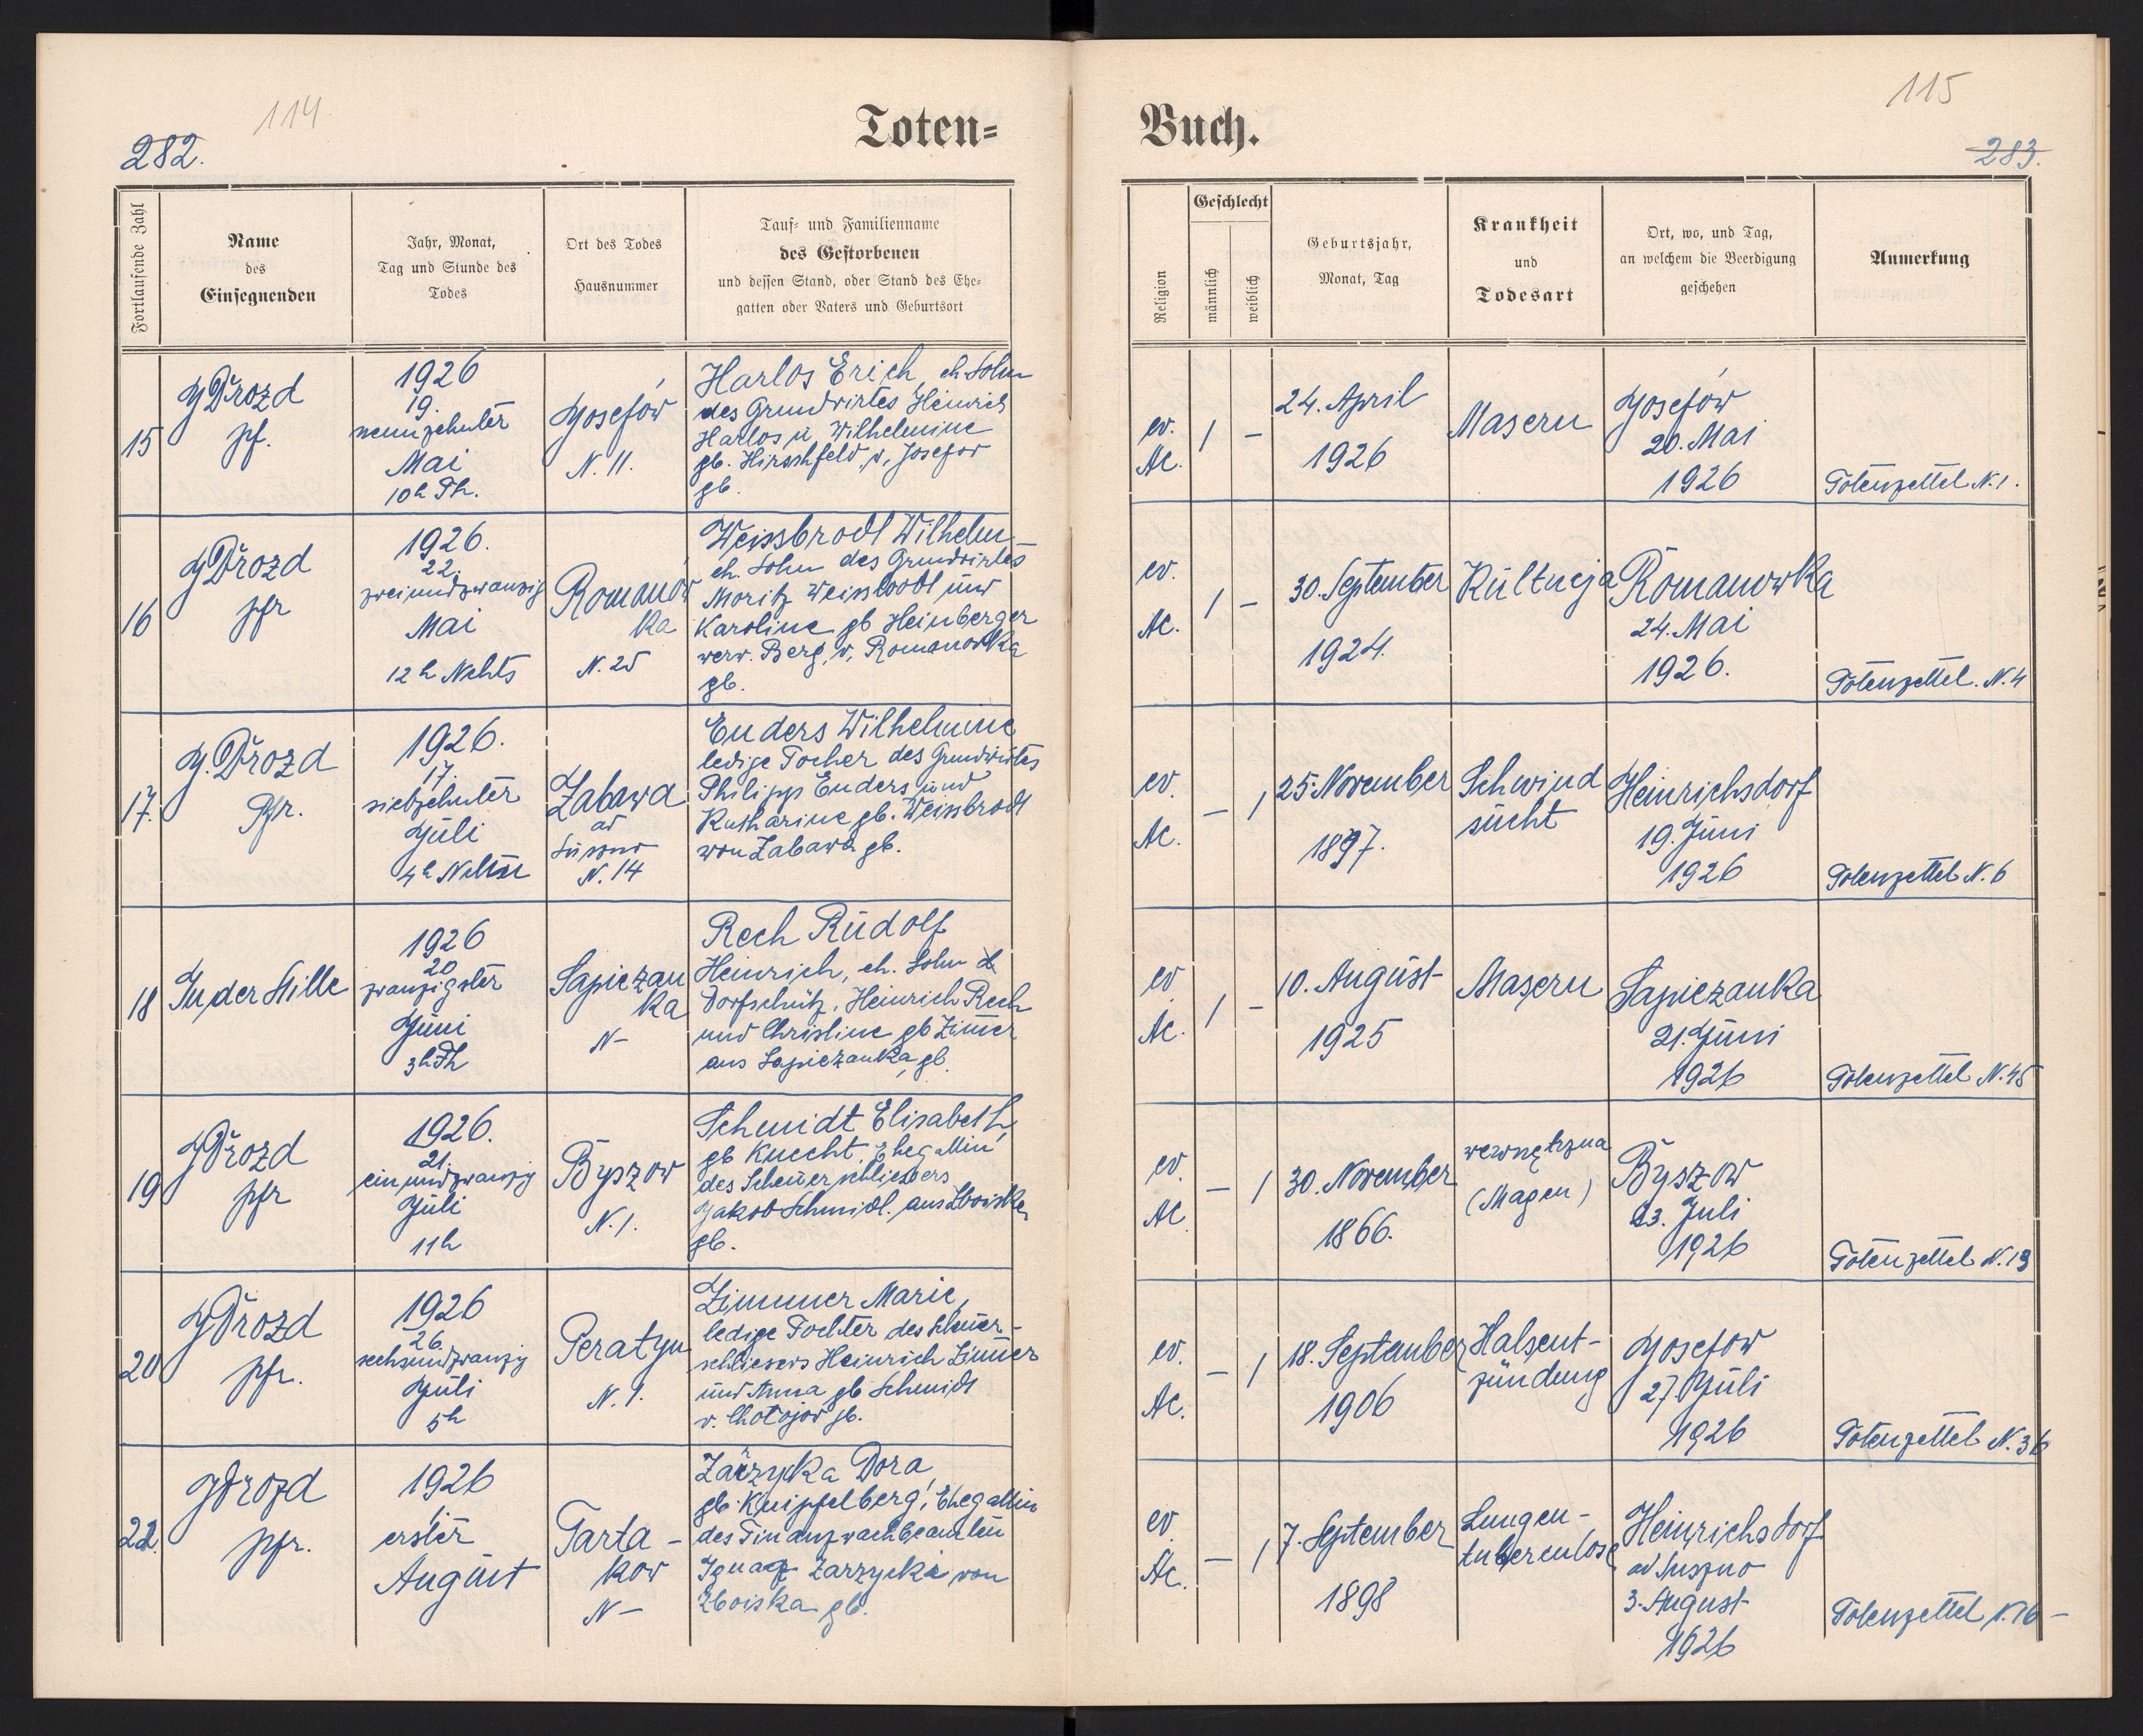 114
282.
Toten=
Fortlaufende Zahl
Name
des
Einsegnenden
Jahr, Monat,
Tag und Stunde des
Todes
Ort des Todes
Hausnummer
Tauf= und Familienname
des Gestorbenen
und dessen Stand, oder Stand des Ehe=
gatten oder Vaters und Geburtsort
15
JDrozd
pf.
1926
19.
neunzehnter
Mai
10h Fh.
Josefów
N. 11.
Harlos Erich, eh. Sohn
des Grundwirtes Heinrich
Harlos u. Wilhelmine
gb. Hirschfeld, v. Josefow
gb.
16
JDrozd
pfr
1926.
22.
zweiundzwanzig
Mai
12h Nchts
Romanów
ka
N. 25
Weissbrodt Wilhelm
eh. Sohn des Grundwirtes
Moritz Weissbrodt und
Karoline gb Heinberger
verw. Berg, v. Romanowka
gb.
17.
J. Drozd
Pfr.
1926.
17.
siebzehnter
Juli
4h
Zabawa
ad
N. 14
Enders Wilhelmine
ledige Tocher des Grundwirtes
Philipp Enders und
Katharine gb. Weissbrodt
von Zabawa gb.
18
In der Stille
1926
20
zwanzigster
Juni
3h Fh
Sapiezan
ka
N –
Rech Rudolf
Heinrich, eh. Sohn d.
Dorfschütz, Heinrich Rech
und Christine gb Zimer
aus Sapiezanka, gb.
19
JDrozd
pfr
1926.
21.
einundzwanzig
Juli
11h
Byszow
N. 1.
Schmidt Elisabeth,
gb Knecht, Ehegattin
des Scheuerschliessers
Jakob Schmidt. aus Zboiska
gb.
20
JDrozd
pfr.
1926
26.
sechsundzwanzig
Juli
5h
Peratyn
N. 1.
Zimmer Marie,
ledige Tochter des Scheuer-
schliesers Heinrich Zimer
und Anna gb Schmidt
v. Chotojow gb.
22.
JDrozd
pfr.
1926
1.
erster
August
Tarta-
kow
N –
Zarzycka Dora
gb. Knipfelberg, Ehegattin
des Finanzwachbeamten
Ignacz Zarzycki von
Zboiska gb.
115
283.
Buch.
Religion
Geschlecht
männlich
weiblich
Geburtsjahr,
Monat, Tag
Krankheit
und
Todesart
Ort, wo, und Tag,
an welchem die Beerdigung
geschehen
Anmerkung
ev.
Ac.
1 –
24. April
1926
Masern
Josefów
20. Mai
1926
Totenzettel N. 1.
ev.
Ac.
1 –
30. September
1924.
Romanowka
24. Mai
1926.
Totenzettel. N. 4
ev.
Ac.
– 1
25. November
1897.
Schwind
sucht
Heinrichsdorf
19. Juni
1926
Totenzettel N. 6
ev
Ac.
1 –
10. August
1925
Masern
Sapiezanka
21. Juni
1926
Totenzettel N. 45
ev.
Ac
– 1
30. November
1866.
wewnętrzna
(Magen)
Byszow
23. Juli
1926
Totenzettel N. 19
ev.
Ac.
– 1
18. September
1906
Halsent-
zündung
Josefow
27. Juli
1926
Totenzettel N. 36
ev
Ac.
– 1
7. September
1898
Lungen-
tuberculose
Heinrichsdorf
ad Suszno
3. August
1926
Totenzettel N. 16 –